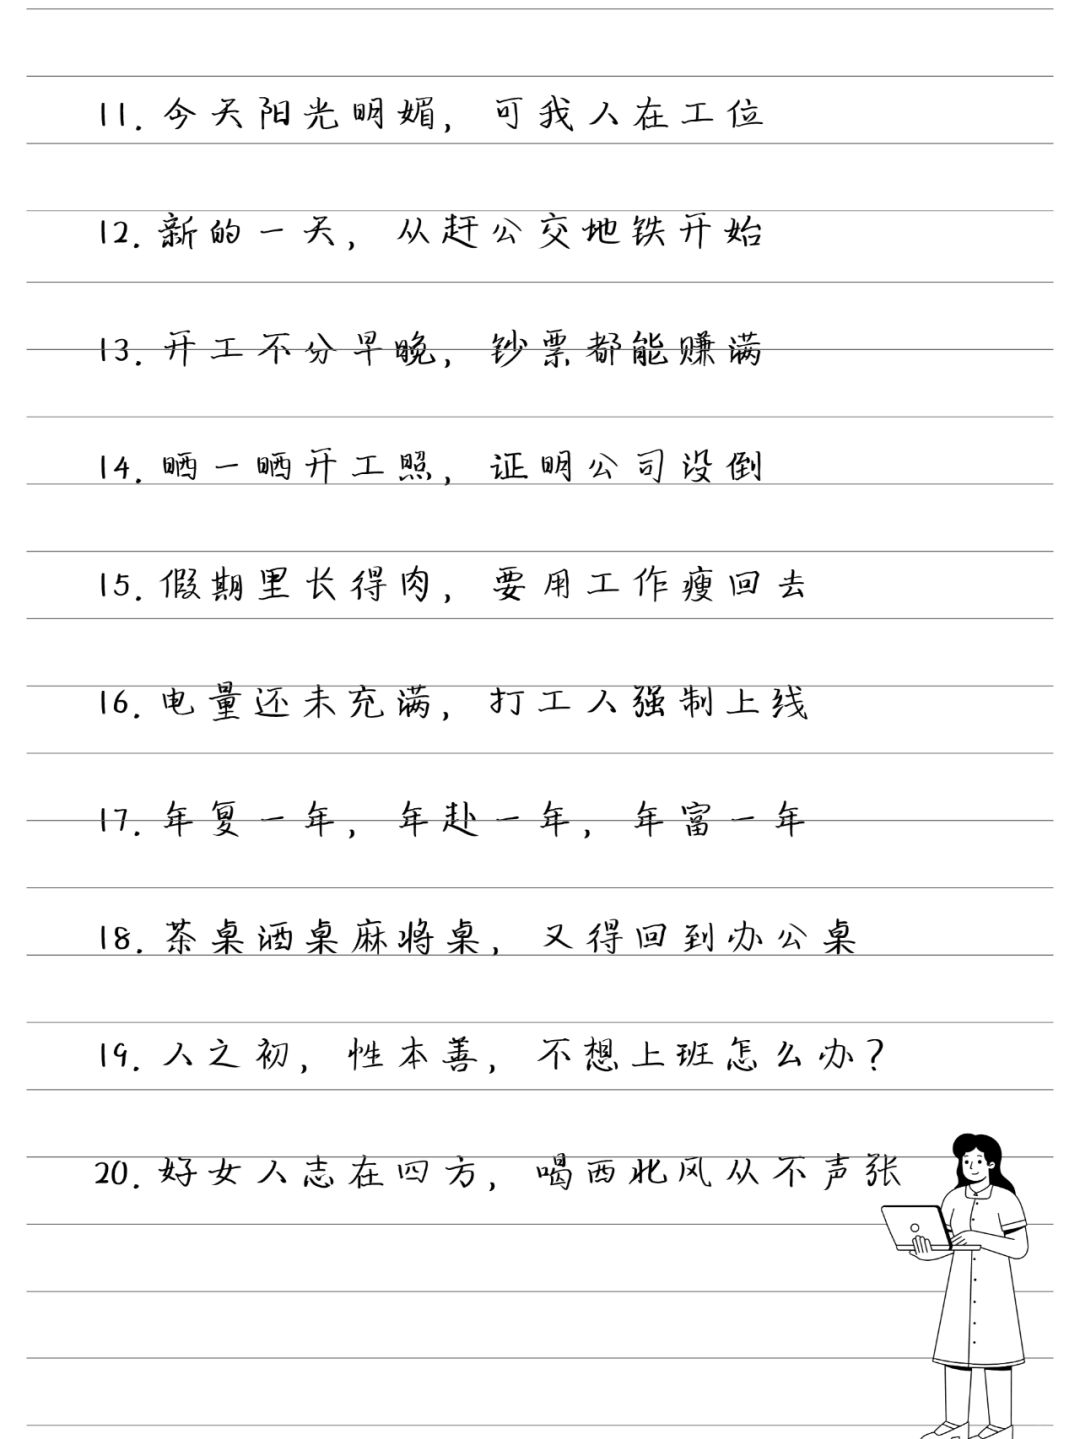 11. 今天阳光明媚, 可我人在工位
12. 新的一天, 从赶公交地铁开始
13. 开工不分早晚, 钞票都能赚满
14. 晒一晒开工照, 证明公司没倒
15. 假期里长得肉, 要用工作瘦回去
16. 电量还未充满, 打工人强制上线
17. 年复一年, 年赴一年, 年富一年
18. 茶桌酒桌麻将桌, 又得回到办公桌
19. 人之初, 性本善, 不想上班怎么办?
20. 好女人志在四方, 喝西北风从不声张